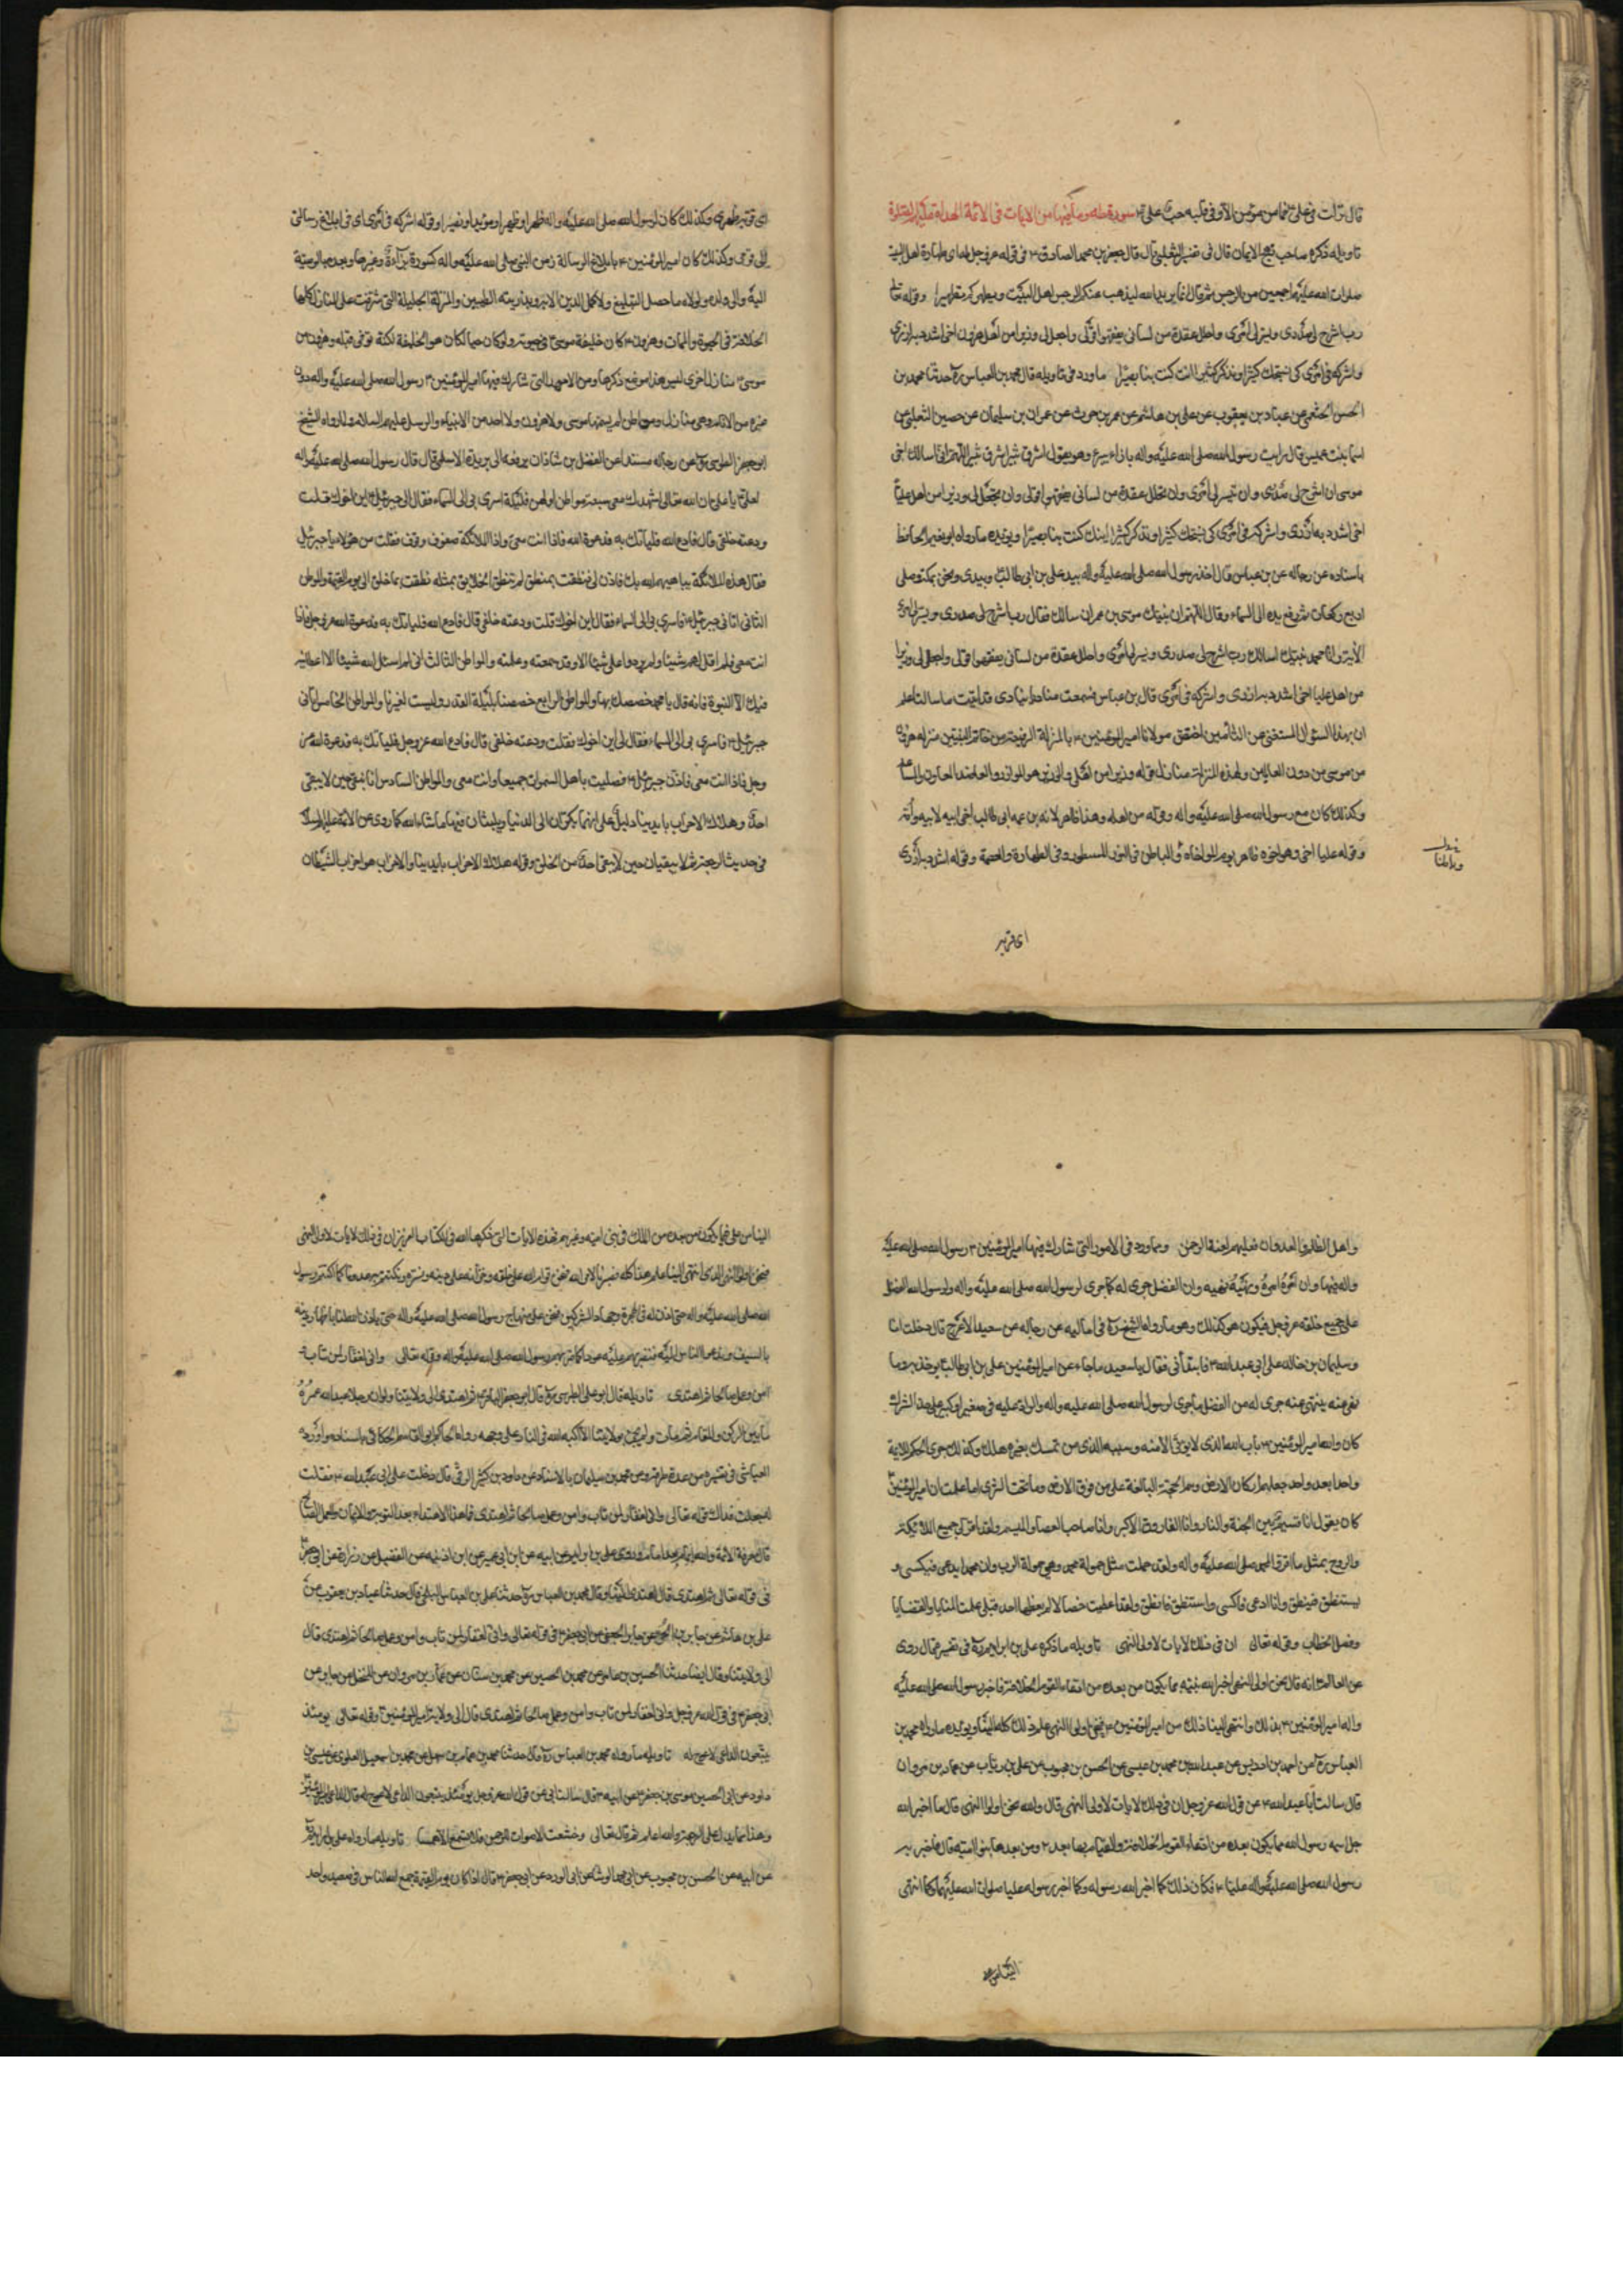 قال نزلت في علي ع فما من مؤمن الا وفي قلبه حب علي ع سورة طه وما فيها من الايات في الائمة الهداة
تاويله ذكره صاحب نهج الايمان قال في تفسير الثعلبي قال قال جعفر بن محمد الصادق ع في قوله عز وجل طه اي طهارة اهل البيت
صلوات الله عليهم اجمعين من الرجس ثم قال انما يريد الله ليذهب عنكم الرجس اهل البيت ويطهركم تطهيرا وقوله تعالى
رب اشرح لي صدري ويسر لي امري واحلل عقدة من لساني يفقهوا قولي واجعل لي وزيرا من اهلي هرون اخي اشدد به ازري
واشركه في امري كي نسبحك كثيرا ونذكرك كثيرا انك كنت بنا بصيرا ما ورد في تاويله قال محمد بن العباس ره حدثنا محمد بن
الحسن الخثعمي عن عباد بن يعقوب عن علي بن هاشم عن عمر بن حرث عن عمران بن سليمان عن حصين الثعلبي عن
اسما بنت عميس قال رايت رسول الله صلى الله عليه واله بازاء ثبير وهو يقول اشرق ثبير اشرق ثبير اللهم اني اسالك ما سالك اخي
موسى ان اشرح لي صدري وان تيسر لي امري وان تحلل عقدة من لساني يفقهوا قولي وان تجعل لي وزيرا من اهلي عليا
اخي اشدد به ازري واشركه في امري كي نسبحك كثيرا ونذكرك كثيرا انك كنت بنا بصيرا ويؤيده ما رواه ابو نعيم الحافظ
باسناده عن رجاله عن بن عباس قال اخذ رسول الله صلى الله عليه واله بيد علي بن ابي طالب ع وبيدي ونحن بمكة وصلى
اربع ركعات ثم رفع يده الى السماء وقال اللهم ان نبيك موسى بن عمران سالك فقال رب اشرح لي صدري ويسر لي امري
الآية وانا محمد نبيك اسالك رب اشرح لي صدري ويسر لي امري واحلل عقدة من لساني يفقهوا قولي واجعل لي وزيرا
من اهلي عليا اخي اشدد به ازري واشركه في امري قال بن عباس فسمعت مناديا ينادي قد اوتيت ما سالت اعلم
ان بهذا السؤال المستغنى عن التامين تحقق مولانا امير المؤمنين ع بالمنزلة الرفيعة من خاتم النبيين منزلة هرون
من موسى من دون العالمين ولهذه المنزلة منازل قوله وزيرا من اهلي والوزير هو الموازر والعاضد المعاون والمساعد
وكذلك كان مع رسول الله صلى الله عليه واله وقوله من اهلي وهذا ظاهر لانه بن عمه ابي طالب اخي ابيه لابيه وامه
وقوله عليا اخي وهو اخوه ظاهر يوم المواخاة وفي الباطن في النور المسطور وفي الطهارة والعصمة وقوله اشدد به ازري
اي قو به
اي قو به ظهري وكذلك كان لرسول الله صلى الله عليه واله ظهرا وظهيرا ومؤيدا ونصيرا وقوله اشركه في امري اي في ابلاغ رسالتي
الى قومي وكذلك كان امير المؤمنين ع بابلاغ الرسالة زمن النبي صلى الله عليه واله كسورة برآءة وغيرها وبعده بالوصية
اليه والى ولده ولولاه ما حصل التبليغ ولا كمل الدين الا به وبذريته الطيبين والمنزلة الجليلة التي شرفت على المنازل كلها
الخلافة في الحيوة والممات وهرون ع كان خليفة موسى ع في حيوته ولو كان حيا لكان هو الخليفة لكنه توفي قبله ولهرون من
موسى ع منازل اخرى ليس هذا موضع ذكرها ومن الامور التي شارك فيها امير المؤمنين ع رسول الله صلى الله عليه واله دون
غيره من الانام وهي منازل ومواطن لم ينلها موسى ولا هرون ولا احد من الانبياء والرسل عليهم السلام ما رواه الشيخ
ابو جعفر الطوسي ره عن رجاله مسندا عن الفضل بن شاذان يرفعه الى بريدة الاسلمي قال قال رسول الله صلى الله عليه واله
لعلي ع يا علي ان الله تعالى اشهدك معي سبعة مواطن اولهن فليلة اسري بي الى السماء فقال لي جبرئيل ع اين اخوك قلت
ودعته خلفي قال فادع الله فلياتك به فدعوت الله فاذا انت معي واذا الملائكة صفوف وقوف فقلت من هؤلاء يا جبرئيل
فقال هذه الملائكة يباهيهم الله بك فاذن لي فنطقت بمنطق لم ينطق الخلائق بمثله نطقت بما خلق الى يوم القيمة والموطن
الثاني اتاني جبرئيل ع فاسري بي الى السماء فقال اين اخوك قلت ودعته خلفي قال فادع الله فلياتك به فدعوت الله عز وجل فاذا
انت معي
فيك الا النبوة فانه قال يا محمد خصصتك بها والموطن الرابع خصصنا بليلة القدر وليست لغيرنا والموطن الخامس اتاني
جبرئيل ع فاسري بي الى السماء فقال لي اين اخوك فقلت ودعته خلفي قال فادع الله عز وجل فلياتك به فدعوت الله عز
وجل فاذا انت معي فاذن جبرئيل ع فصليت باهل السموات جميعا وانت معي والموطن السادس انا نبقى حين لا يبقى
احد وهلاك الاحزاب بايدينا دليل على انهما يكران الى الدنيا ويلبثان فيها ما شاء الله كما روي عن الائمة عليهم السلام
في حديث الرجعة ثم لا يبقيان حين لا يبقى احد من الخلق وقوله هلاك الاحزاب بايدينا والاحزاب هو احزاب الشيطان
واهل الظلم والعدوان فعليهم لعنة الرحمن ومما ورد في الامور التي شارك فيها امير المؤمنين ع رسول الله صلى الله عليه
واله فيها وان امره امره ونهيه نهيه وان الفضل جرى له كما جرى لرسول الله صلى الله عليه واله ولرسول الله الفضل
على جميع خلقه عز وجل فيكون هو كذلك وهو ما رواه الشيخ ره في اماليه عن رجاله عن سعيد الاعرج قال دخلت انا
وسليمان بن خالد على ابي عبد الله ع فابتدأني فقال يا سعيد ما جاء عن امير المؤمنين علي بن ابي طالب ع يؤخذ به وما
نهى عنه ينتهى عنه جرى له من الفضل ما جرى لرسول الله صلى الله عليه واله والراد عليه في صغير او كبير على حد الشرك
كان والله امير المؤمنين ع باب الله الذي لا يؤتى الا منه وسبيله الذي من تمسك بغيره هلك وكذلك جرى الحكم للائمة
واحدا بعد واحد جعلهم اركان الارض وهم الحجة البالغة على من فوق الارض وما تحت الثرى اما علمت ان امير المؤمنين ع
كان يقول انا قسيم بين الجنة والنار وانا الفاروق الاكبر وانا صاحب العصا والميسم ولقد اقر لي جميع الملائكة
والروح بمثل ما اقروا لمحمد صلى الله عليه واله ولقد حملت مثل حمولة محمد وهي حمولة الرب وان محمدا يدعى فيكسى و
يستنطق فينطق وانا ادعى فاكسى واستنطق فانطق ولقد اعطيت خصالا لم يعطها احد قبلي علمت المنايا والقضايا
وفصل الخطاب وقوله تعالى ان في ذلك لايات لاولي النهى تاويله ما ذكره علي بن ابراهيم ره في تفسيره قال روى
عن العالم ع انه قال نحن اولي النهى اخبر الله نبيه بما يكون من بعده من ادعاء القوم الخلافة فاخبر رسول الله صلى الله عليه
واله امير المؤمنين ع بذلك وانتهى الينا ذلك من امير المؤمنين ع فنحن اولى النهى علم ذلك كله الينا ويؤيده ما رواه محمد بن
العباس ره عن احمد بن ادريس عن عبد الله بن محمد بن عيسى عن الحسن بن محبوب عن علي بن رئاب عن عمار بن مروان
قال سالت ابا عبد الله ع عن قول الله عز وجل ان في ذلك لايات لاولي النهى قال والله نحن اولوا النهى قال ما اخبر الله
جل اسمه رسول الله مما يكون بعده من ادعاء القوم الخلافة والقيام بها بعده ومن بعدهما بنوا امية قال فاخبر به
رسول الله صلى الله عليه واله عليا ع فكان ذلك كما اخبر الله رسوله وكما اخبر رسوله عليا صلوات الله عليهما وكما انتهى
الينا من علي
الينا من علي فيما يكون من بعده من الملك في بني امية وغيرهم فهذه الايات التي ذكرها الله في الكتاب العزيز ان في ذلك لايات لاولي النهى
فنحن اولي النهى الذي انتهى الينا علم هذا كله فصبرنا لامر الله فنحن قوام الله على خلقه وخزانه على دينه ونستره ونكتتم به من عدونا كما اكتتم رسول
الله صلى الله عليه واله حتى اذن له في الهجرة وجهاد المشركين فنحن على منهاج رسول الله صلى الله عليه واله حتى ياذن الله لنا باظهار دينه
بالسيف وندعو الناس اليه فنضربهم عليه عودا كما ضربهم رسول الله صلى الله عليه واله وقوله تعالى واني لغفار لمن تاب
امن وعمل صالحا ثم اهتدى تاويله قال ابو علي الطبرسي ره قال ابو جعفر الباقر ع ثم اهتدى الى ولايتنا ولو ان رجلا عبد الله عمره
ما بين الركن والمقام ثم مات ولم يجئ بولايتنا الا اكبه الله في النار على وجهه رواه الحاكم ابو القاسم الحسكاني باسناده واورده
العياشي في تفسيره من عدة طرق وعن محمد بن سليمان بالاسناد عن داود بن كثير الرقي قال دخلت على ابي عبد الله ع فقلت
له جعلت فداك قوله تعالى واني لغفار لمن تاب وامن وعمل صالحا ثم اهتدى فما هذا الاهتداء بعد التوبة والايمان والعمل الصالح
قال معرفة الائمة والله امام بعد امام وروى علي بن ابراهيم عن ابيه عن ابن ابي عمير عن ابن اذينة عن الفضيل عن زرارة عن ابي جعفر ع
في قوله تعالى ثم اهتدى قال اهتدى الينا وقال محمد بن العباس ره حدثنا علي بن العباس البجلي قال حدثنا عباد بن يعقوب عن
علي بن هاشم عن جابر بن الحر عن جابر الجعفي عن ابي جعفر ع في قوله تعالى واني لغفار لمن تاب وامن وعمل صالحا ثم اهتدى قال
الى ولايتنا وقال ايضا حدثنا الحسين بن عامر عن محمد بن الحسين عن محمد بن سنان عن عمار بن مروان عن المنخل عن جابر عن
ابي جعفر ع في قول الله عز وجل واني لغفار لمن تاب وامن وعمل صالحا ثم اهتدى قال الى ولاية امير المؤمنين ع وقوله تعالى يومئذ
يتبعون الداعي لا عوج له تاويله ما رواه محمد بن العباس ره قال حدثنا محمد بن همام بن سهل عن محمد بن اسمعيل العلوي عن عيسى بن
داود عن ابي الحسن موسى بن جعفر ع عن ابيه ع قال سالت ابي عن قول الله عز وجل يومئذ يتبعون الداعي لا عوج له قال الداعي امير المؤمنين ع
وهذا مما يدل على الرجعة والله اعلم ثم قال تعالى وخشعت الاصوات للرحمن فلا تسمع الا همسا تاويله ما رواه علي بن ابراهيم ره
عن ابيه عن الحسن بن محبوب عن ابي محمد الوابشي عن ابي الورد عن ابي جعفر ع قال اذا كان يوم القيمة جمع الله الناس في صعيد واحد